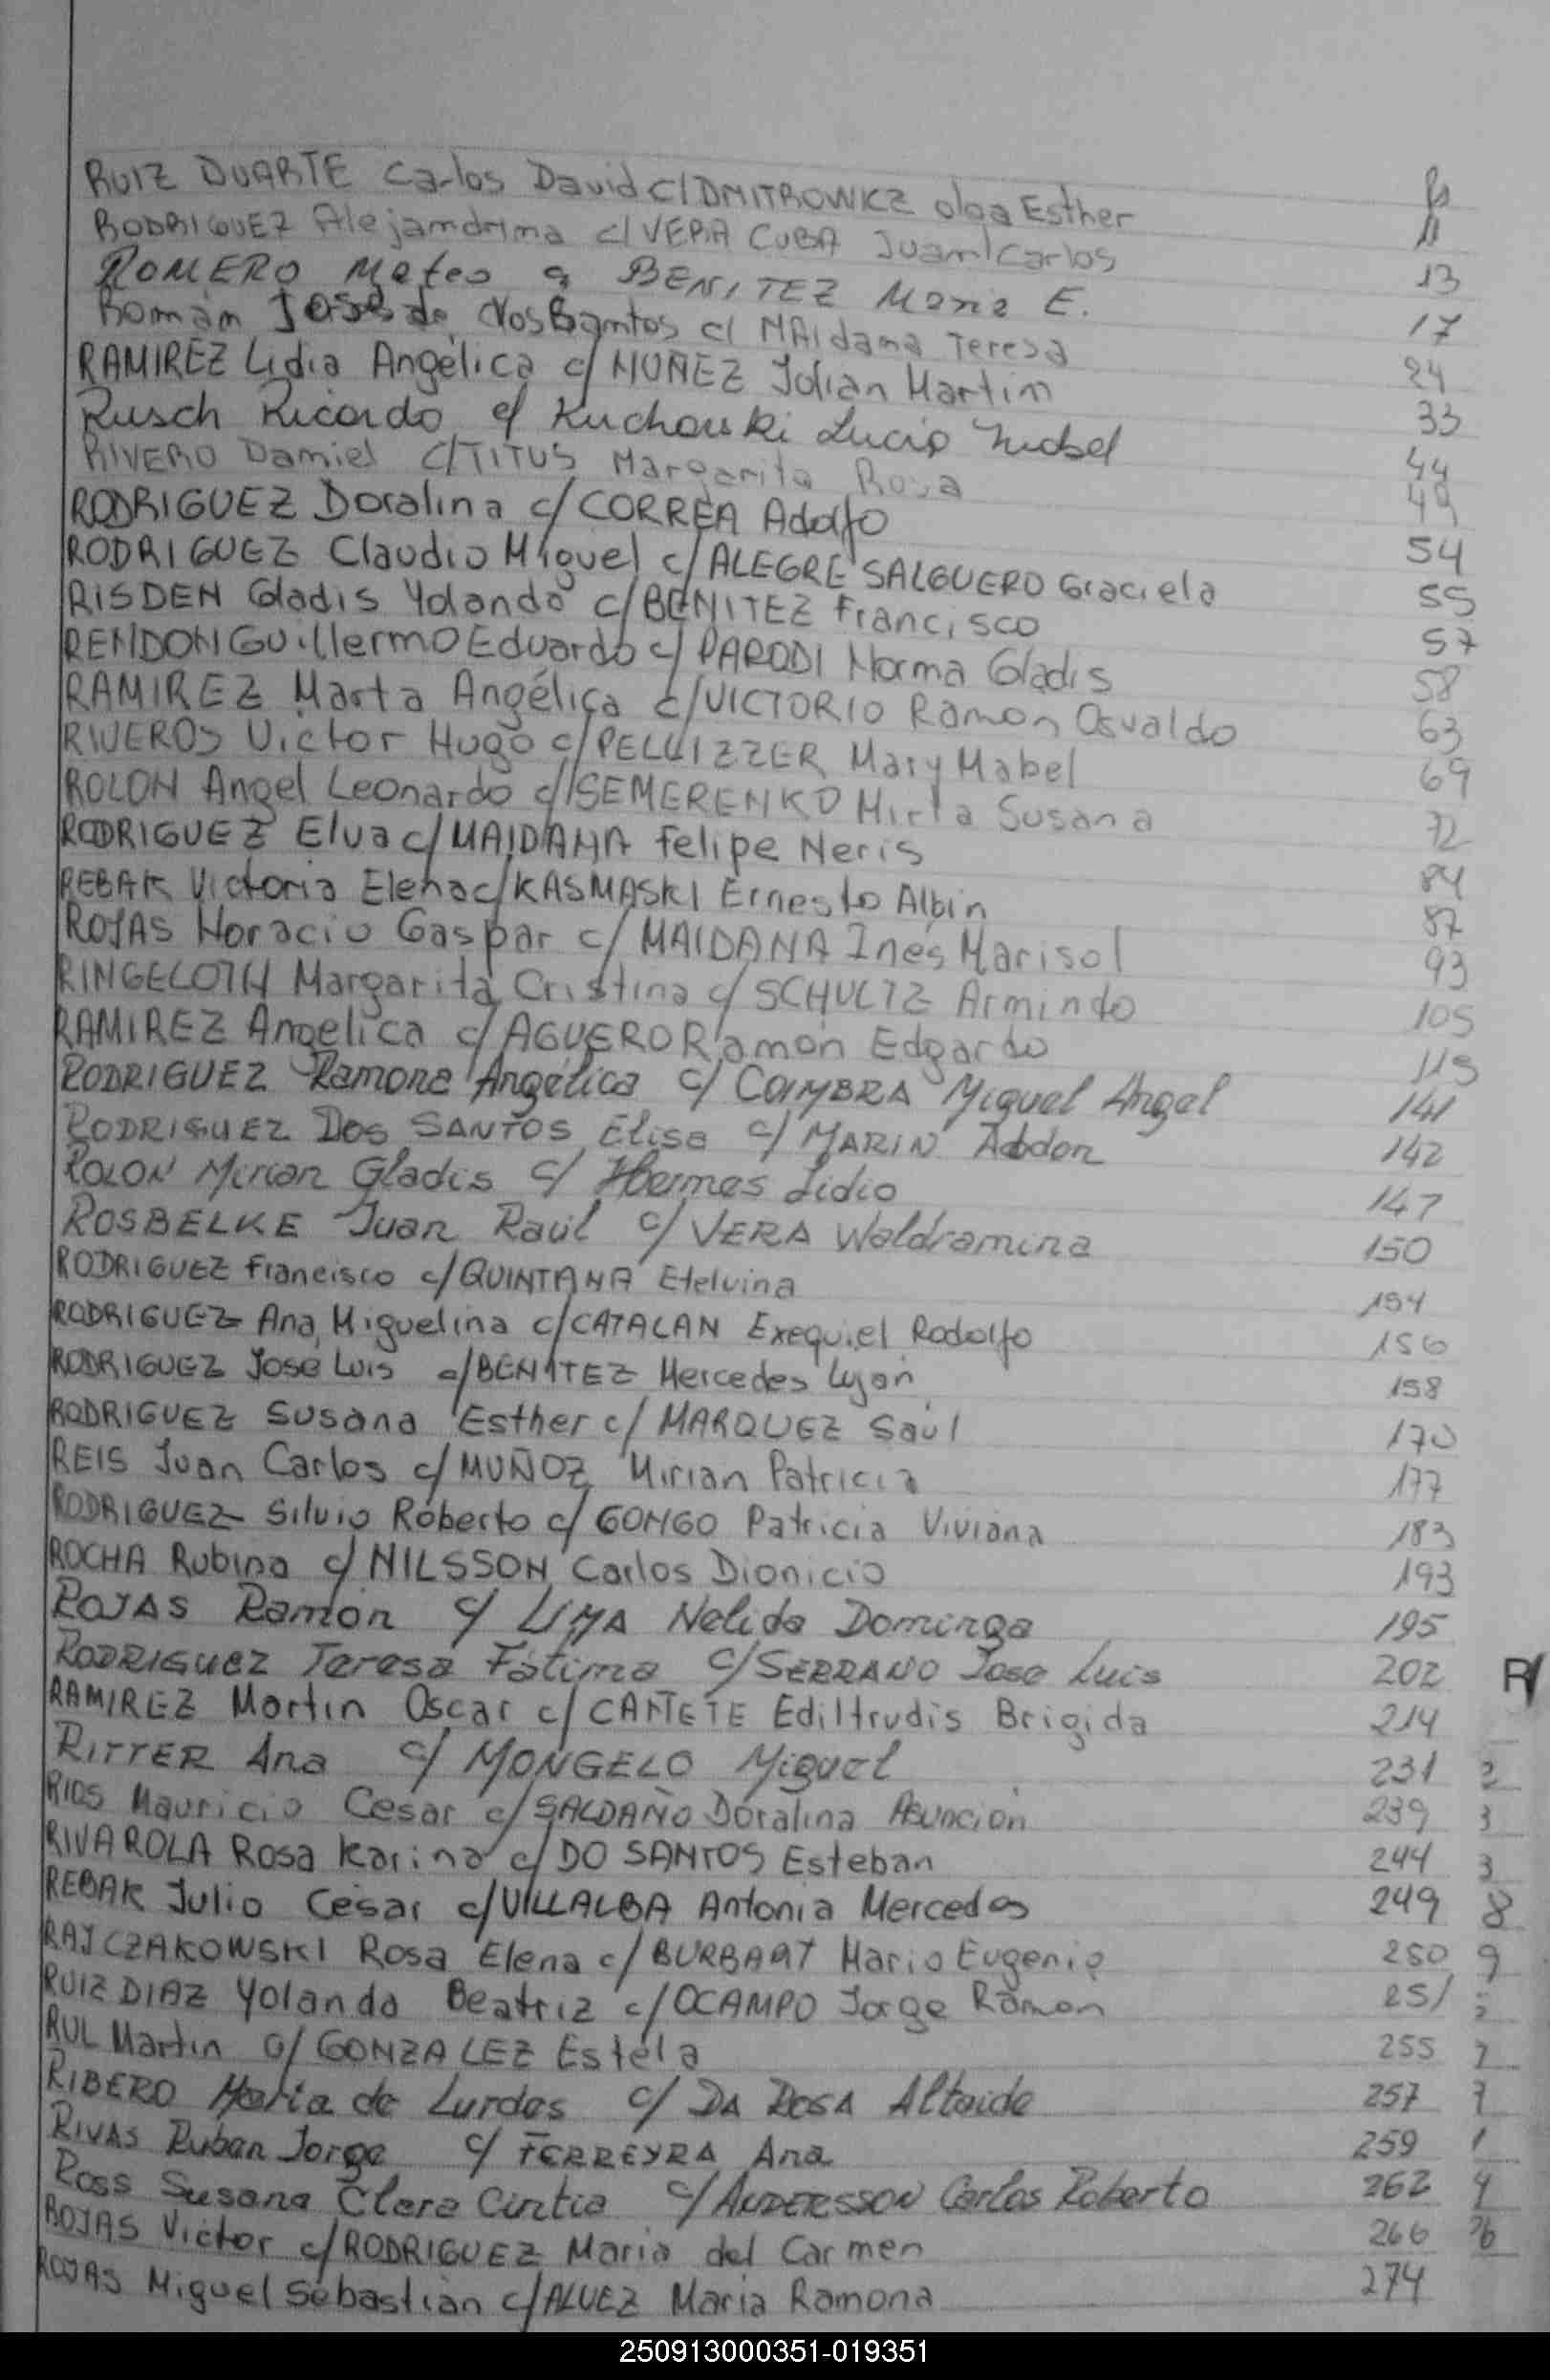 RUIZ DUARTE Carlos David c/ DMITROWICZ olga Esther
RODRIGUEZ Alejamdrima c/ VERA CUBA Juam Carlos 11
ROMERO Mateo c/ BENITEZ Maria E. 13
Román José de los Santos c/ MAIdama Teresa 17
RAMIREZ Lidia Angélica c/ NUÑEZ Julian Martin 24
Rusch Ricardo c/ Kuchouski Lucia 33
RIVERO Damiel c/ TITUS Margarita Rosa 44
RODRIGUEZ Doralina c/ CORREA Adolfo 49
RODRIGUEZ Claudio Miguel c/ ALEGRE SALGUERO Graciela 54
RISDEN Gladis Yolanda c/ BENITEZ Francisco 55
RENDON Guillermo Eduardo c/ PARODI Norma Gladis 57
RAMIREZ Marta Angélica c/ VICTORIO Ramon Osvaldo 58
RIVEROS Victor Hugo c/ PELLIZZER Mary Mabel 63
ROLON Angel Leonardo c/ SEMERENKO Mirta Susana 69
RODRIGUEZ Elva c/ MAIDANA Felipe Neris 72
REBAK Victoria Elena c/ KASMASKI Ernesto Albin 84
ROJAS Horacio Gaspar c/ MAIDANA Inés Marisol 87
RINGELOTH Margarita Cristina c/ SCHULTZ Armindo 93
RAMIREZ Angelica c/ AGUERO Ramón Edgardo 105
RODRIGUEZ Ramona Angélica c/ COIMBRA Miguel Angel 115
RODRIGUEZ DOS SANTOS Elisa c/ MARIN Abdon 141
ROLON Mirian Gladis c/ Hermes Lidio 142
ROSBELKE Juan Raúl c/ VERA Waldramina 147
RODRIGUEZ Francisco c/ QUINTANA Etelvina 150
RODRIGUEZ Ana Miguelina c/ CATALAN Exequiel Rodolfo 154
RODRIGUEZ José Luis c/ BENITEZ Mercedes Lujan 156
RODRIGUEZ Susana Esther c/ MARQUEZ Saúl 158
REIS Juan Carlos c/ MUÑOZ Mirian Patricia 170
RODRIGUEZ Silvio Roberto c/ GONGO Patricia Viviana 177
ROCHA Rubina c/ NILSSON Carlos Dionicio 183
ROJAS Ramón c/ LIMA Nelida Dominga 193
RODRIGUEZ Teresa Fátima c/ SERRANO Jose Luis 195
RAMIREZ Martin Oscar c/ CAÑETE Ediltrudis Brigida 202 R/
RITTER Ana c/ MONGELO Miguel 214
RIOS Mauricio Cesar c/ SALDAÑO Doralina Asunción 231
RIVAROLA Rosa Karina c/ DO SANTOS Esteban 239 3
REBAK Julio César c/ VILLALBA Antonia Mercedes 244 3
RAJCZAKOWSKI Rosa Elena c/ BURBART Mario Eugenio 249 8
RUIZ DIAZ Yolanda Beatriz c/ OCAMPO Jorge Ramon 250 9
RUL Martin c/ GONZALEZ Estela 251
RIBERO Maria de Lurdes c/ DA ROSA Altaide 255
RIVAS Ruben Jorge c/ FERREYRA Ana 257 7
ROSS Susana Clara Cintia c/ ANDERSSON Carlos Roberto 259 1
ROJAS Victor c/ RODRIGUEZ Maria del Carmen 262 4
ROJAS Miguel Sebastián c/ ALVEZ Maria Ramona 266
274
250913000351-019351